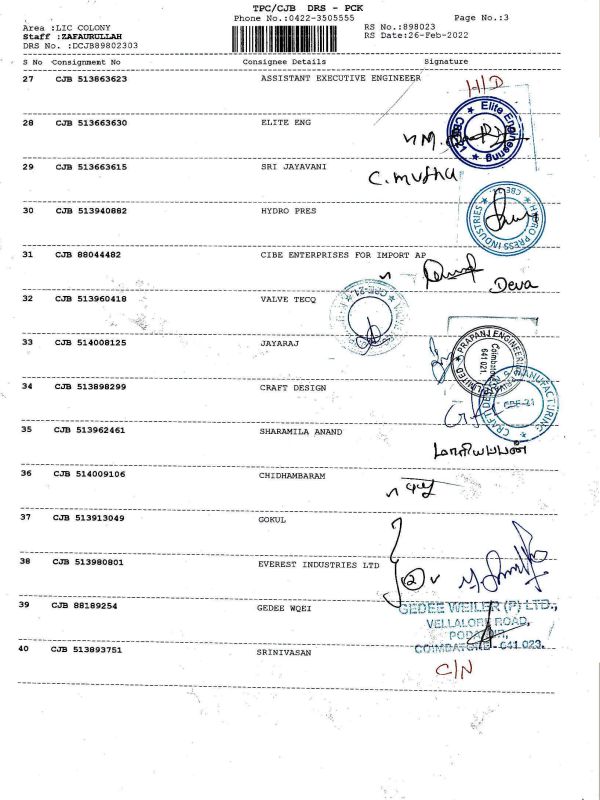 TPC/CJB DRS - PCK
Phone No.:0422-3505555
Page No.:3
Area :LIC COLONY
RS No.:898023
Staff :ZAFAURULLAH
RS Date:26-Feb-2022
DRS No. :DCJB89802303
S No Consignment No Consignee Details Signature
27 CJB 513863623 ASSISTANT EXECUTIVE ENGINEEER
H/D
28 CJB 513663630 ELITE ENG
Elite Engineering
29 CJB 513663615 SRI JAYAVANI
C. Muthu
30 CJB 513940882 HYDRO PRES
HYDRO PRESS INDUSTRIES CBE-21
31 CJB 88044482 CIBE ENTERPRISES FOR IMPORT AP
Deva
32 CJB 513960418 VALVE TECQ
CBE-21
33 CJB 514008125 JAYARAJ
PRAPANJ ENGINEERING
LIMITED
Coimbatore
641 021.
34 CJB 513898299 CRAFT DESIGN
MANUFACTURING
CBE-21
35 CJB 513962461 SHARAMILA ANAND
மாரியப்பன்
36 CJB 514009106 CHIDHAMBARAM
37 CJB 513913049 GOKUL
38 CJB 513980801 EVEREST INDUSTRIES LTD
2
39 CJB 88189254 GEDEE WQEI
GEDEE WEILER (P) LTD.,
VELLALORE ROAD,
COIMBATORE - 641 023.
40 CJB 513893751 SRINIVASAN
C/N